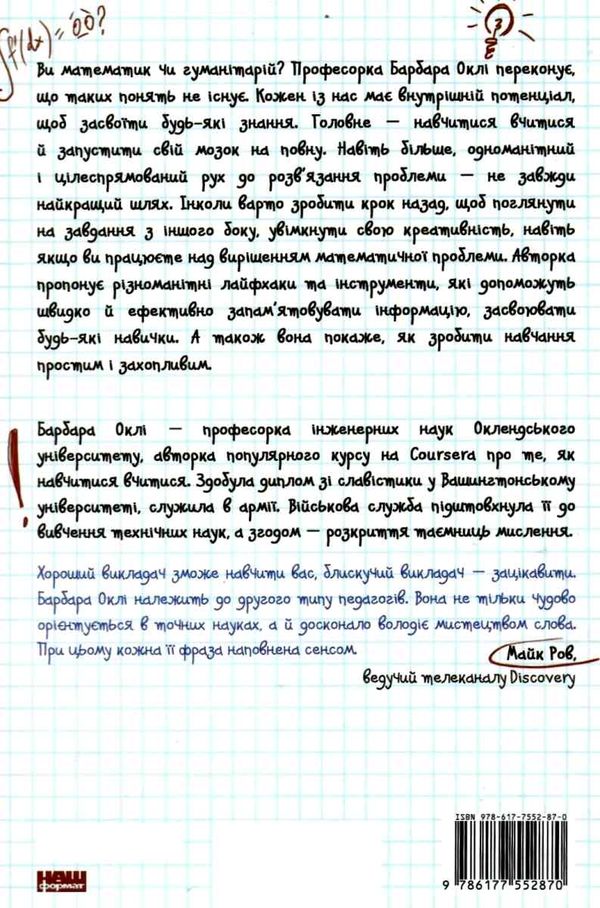 ∫f'(dx)="00?
3
Ви математик чи гуманітарій? Професорка Барбара Оклі переконує,
що таких понять не існує. Кожен із нас має внутрішній потенціал,
щоб засвоїти будь-які знання. Головне — навчитися вчитися
й запустити свій мозок на повну. Навіть більше, одноманітний
і цілеспрямований рух до розв'язання проблеми — не завжди
найкращий шлях. Інколи варто зробити крок назад, щоб поглянути
на завдання з іншого боку, увімкнути свою креативність, навіть
якщо ви працюєте над вирішенням математичної проблеми. Авторка
пропонує різноманітні лайфхаки та інструменти, які допоможуть
швидко й ефективно запам'ятовувати інформацію, засвоювати
будь-які навички. А також вона покаже, як зробити навчання
простим і захопливим.
!
Барбара Оклі — професорка інженерних наук Оклендського
університету, авторка популярного курсу на Coursera про те, як
навчитися вчитися. Здобула диплом зі славістики у Вашингтонському
університеті, служила в армії. Військова служба підштовхнула її до
вивчення технічних наук, а згодом — розкриття таємниць мислення.
Хороший викладач зможе навчити вас, блискучий викладач — зацікавити.
Барбара Оклі належить до другого типу педагогів. Вона не тільки чудово
орієнтується в точних науках, а й досконало володіє мистецтвом слова.
При цьому кожна її фраза наповнена сенсом.
Майк Ров,
ведучий телеканалу Discovery
ISBN 978-617-7552-87-0
9 786177 552870
НАШ
формат